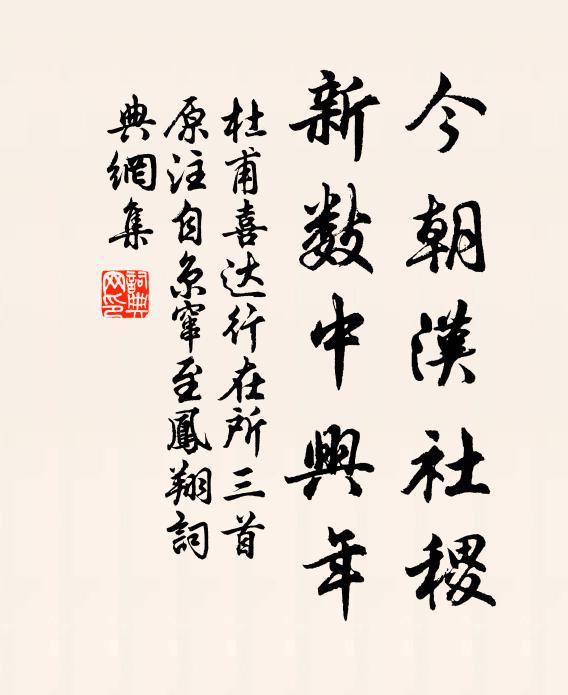 今朝漢社稷
新数中興年
杜甫喜达行在所三首
原注自京窜至鳳翔詞
典網集
詞典網印